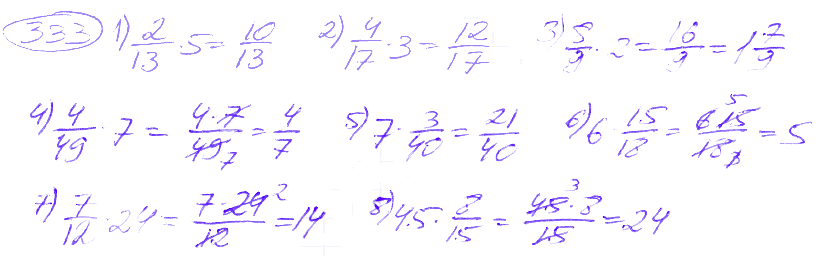 333 1) 2/13 · 5 = 10/13 2) 4/17 · 3 = 12/17 3) 8/9 · 2 = 16/9 = 1 7/9
4) 4/49 · 7 = 4·7/49 7 = 4/7 5) 7 · 3/40 = 21/40 6) 6 · 15/18 = 6 15 5/18 3 = 5
7) 7/12 · 24 = 7·24 2/12 = 14 8) 45 · 8/15 = 45 3 · 8/15 = 24